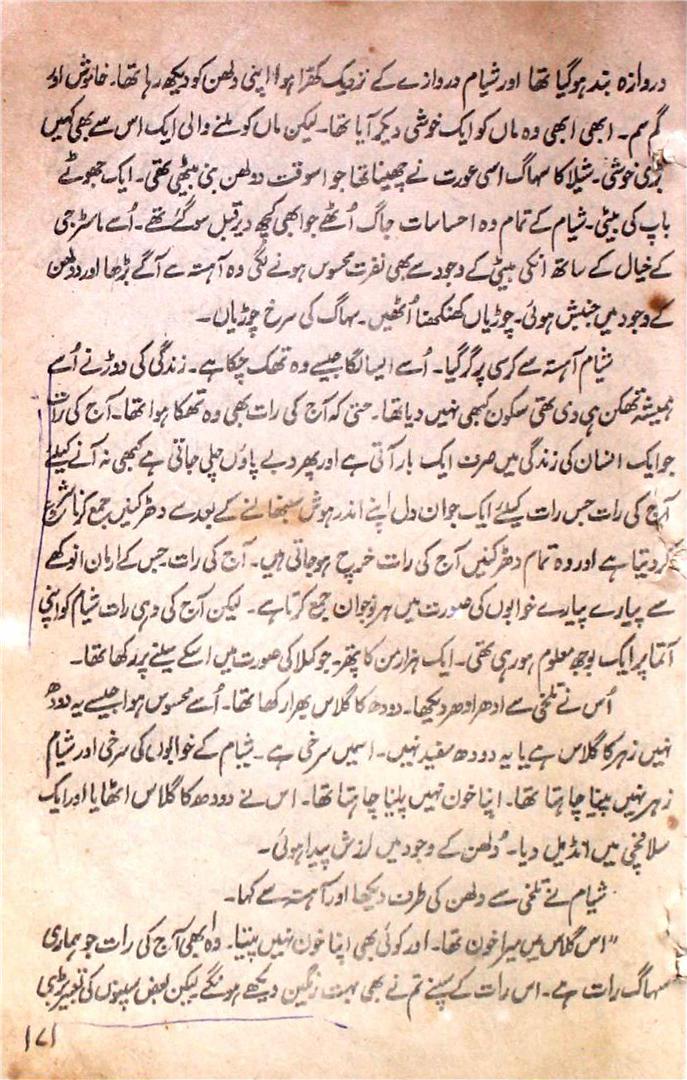 دروازہ بند ہوگیا تھا اور شیام دروازے کے نزدیک کھڑا ہوا اپنی دلھن کو دیکھ رہا تھا۔ خاموش اور
گم سم۔ ابھی ابھی وہ ماں کو ایک خوشی دیکر آیا تھا۔ لیکن ماں کو ملنے والی ایک اس سے بھی کہیں
بڑی خوشی۔ شیلا کا سہاگ اسی عورت نے چھینا تھا جو اسوقت دولھن بنی بیٹھی تھی۔ ایک جھوٹے
باپ کی بیٹی۔ شیام کے تمام وہ احساسات جاگ اُٹھے جو ابھی کچھ دیر قبل سو گئے تھے۔ اُسے ماسٹر جی
کے خیال کے ساتھ انکی بیٹی کے وجود سے بھی نفرت محسوس ہونے لگی وہ آہستہ سے آگے بڑھا اور دولھن
کے وجود میں جنبش ہوئی۔ چوڑیاں کھنکھنا اُٹھیں۔ سہاگ کی سرخ چوڑیاں۔
شیام آہستہ سے کرسی پر گر گیا۔ اُسے ایسا لگا جیسے وہ تھک چکا ہے۔ زندگی کی دوڑ نے اُسے
ہمیشہ تھکن ہی دی تھی سکون کبھی نہیں دیا تھا۔ حتیٰ کہ آج کی رات بھی وہ تھکا ہوا تھا۔ آج کی رات
جو ایک انسان کی زندگی میں صرف ایک بار آتی ہے اور پھر دبے پاؤں چلی جاتی ہے کبھی نہ آنے کیلئے
آج کی رات جس رات کیلئے ایک جوان دل اپنے اندر ہوش سنبھالنے کے بعد سے دھڑکنیں جمع کرنا شروع
کر دیتا ہے اور وہ تمام دھڑکنیں آج کی رات خرچ ہو جاتی ہیں۔ آج کی رات جس کے ارمان انوکھے
سے پیارے پیارے خوابوں کی صورت میں ہر نوجوان جمع کرتا ہے۔ لیکن آج کی وہی رات شیام کو اپنی
آتما پر ایک بوجھ معلوم ہو رہی تھی۔ ایک ہزار من کا پتھر۔ جو کملا کی صورت میں اسکے سینے پر رکھا تھا۔
اُس نے تلخی سے ادھر ادھر دیکھا۔ دودھ کا گلاس بھرا رکھا تھا۔ اُسے محسوس ہوا جیسے یہ دودھ
نہیں زہر کا گلاس ہے یا یہ دودھ سفید نہیں۔ اسمیں سرخی ہے۔ شیام کے خوابوں کی سرخی اور شیام
زہر نہیں پینا چاہتا تھا۔ اپنا خون نہیں پینا چاہتا تھا۔ اس نے دودھ کا گلاس اٹھایا اور ایک
سلاپچی میں انڈیل دیا۔ دُلھن کے وجود میں لرزش پیدا ہوئی۔
شیام نے تلخی سے دلھن کی طرف دیکھا اور آہستہ سے کہا۔
"اس گلاس میں میرا خون تھا۔ اور کوئی بھی اپنا خون نہیں پیتا۔ وہ ابھی آج کی رات جو ہماری
سہاگ رات ہے۔ اس رات کے سپنے تم نے بھی بہت رنگین دیکھے ہونگے لیکن بعض سپنوں کی تعبیر بڑی
۱۷۱